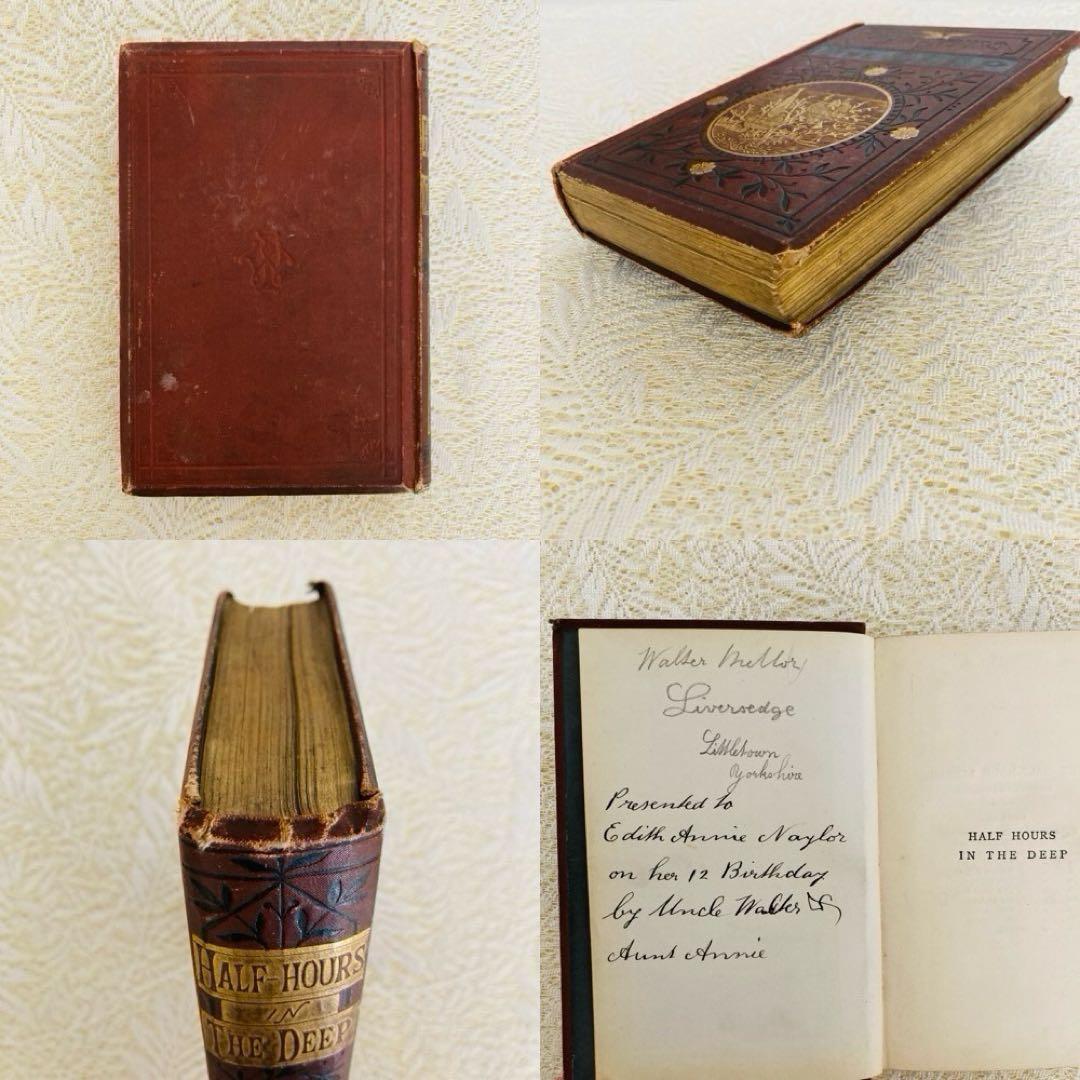 HALF-HOURS
IN
THE DEEP
Walter Mellor
Liversedge
Littletown
Yorkshire
Presented to
Edith Annie Naylor
on her 12 Birthday
by Uncle Walter &
Aunt Annie
HALF HOURS
IN THE DEEP